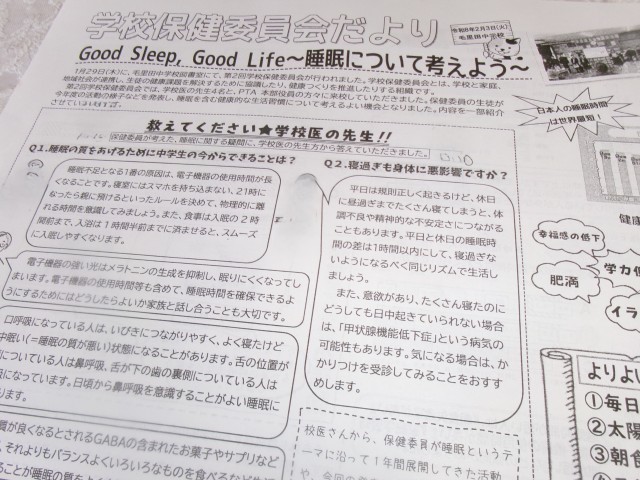 学校保健委員会だより
令和8年2月3日(火)
毛里田中学校
Good Sleep, Good Life～睡眠について考えよう～
1月29日(木)に、毛里田中学校図書室にて、第2回学校保健委員会が行われました。学校保健委員会とは、学校と家庭、
地域社会が連携し、生徒の健康課題を解決するために協議したり、健康づくりを推進したりする組織です。
第2回学校保健委員会では、学校医の先生4名と、PTA本部役員の方々に来校していただきました。保健委員の生徒が
今年度の活動の様子などを発表し、睡眠を含む健康的な生活習慣について考えるよい機会となりました。内容を一部紹介
させていただきます。
教えてください★学校医の先生!!
保健委員が考えた、睡眠に関する疑問に、学校医の先生方から答えていただきました。
Q1.睡眠の質をあげるために中学生の今からできることは?
睡眠不足となる1番の原因は、電子機器の使用時間が長
くなることです。寝室にはスマホを持ち込まない、21時に
なったら親に預けるといったルールを決めて、物理的に離
れる時間を意識してみましょう。また、食事は入眠の2時
間前まで、入浴は1時間半前までに済ませると、スムーズ
に入眠しやすくなります。
電子機器の強い光はメラトニンの生成を抑制し、眠りにくくなってし
まいます。電子機器の使用時間等も含めて、睡眠時間を確保できるよ
うにするためにはどうしたらよいか家族と話し合うことも大切です。
口呼吸になっている人は、いびきにつながりやすく、よく寝たけど
中眠い(=睡眠の質が悪い)状態になることがあります。舌の位置が
についている人は鼻呼吸、舌が下の歯の裏側についている人は
吸になっています。日頃から鼻呼吸を意識することがよい睡眠に
ります。
質が良くなるとされるGABAの含まれたお菓子やサプリなど
、それよりもバランスよくいろいろなものを食べるなど
ることが睡眠の質を
Q2.寝過ぎも身体に悪影響ですか?
平日は規則正しく起きるけど、休日
に昼過ぎまでたくさん寝てしまうと、体
調不良や精神的な不安定さにつながる
こともあります。平日と休日の睡眠時
間の差は1時間以内にして、寝過ぎな
いようになるべく同じリズムで生活し
ましょう。
また、意欲があり、たくさん寝たのに
どうしても日中起きていられない場合
は、「甲状腺機能低下症」という病気の
可能性もあります。気になる場合は、か
かりつけを受診してみることをおすす
めします。
校医さんから、保健委員が睡眠というテ
ーマに沿って1年間展開してきた活動
や、今回の
日本人の睡眠時間
は世界最短!
健康
幸福感の低下
学力低
肥満
イラ
よりよい
①毎日
②太陽
③朝食